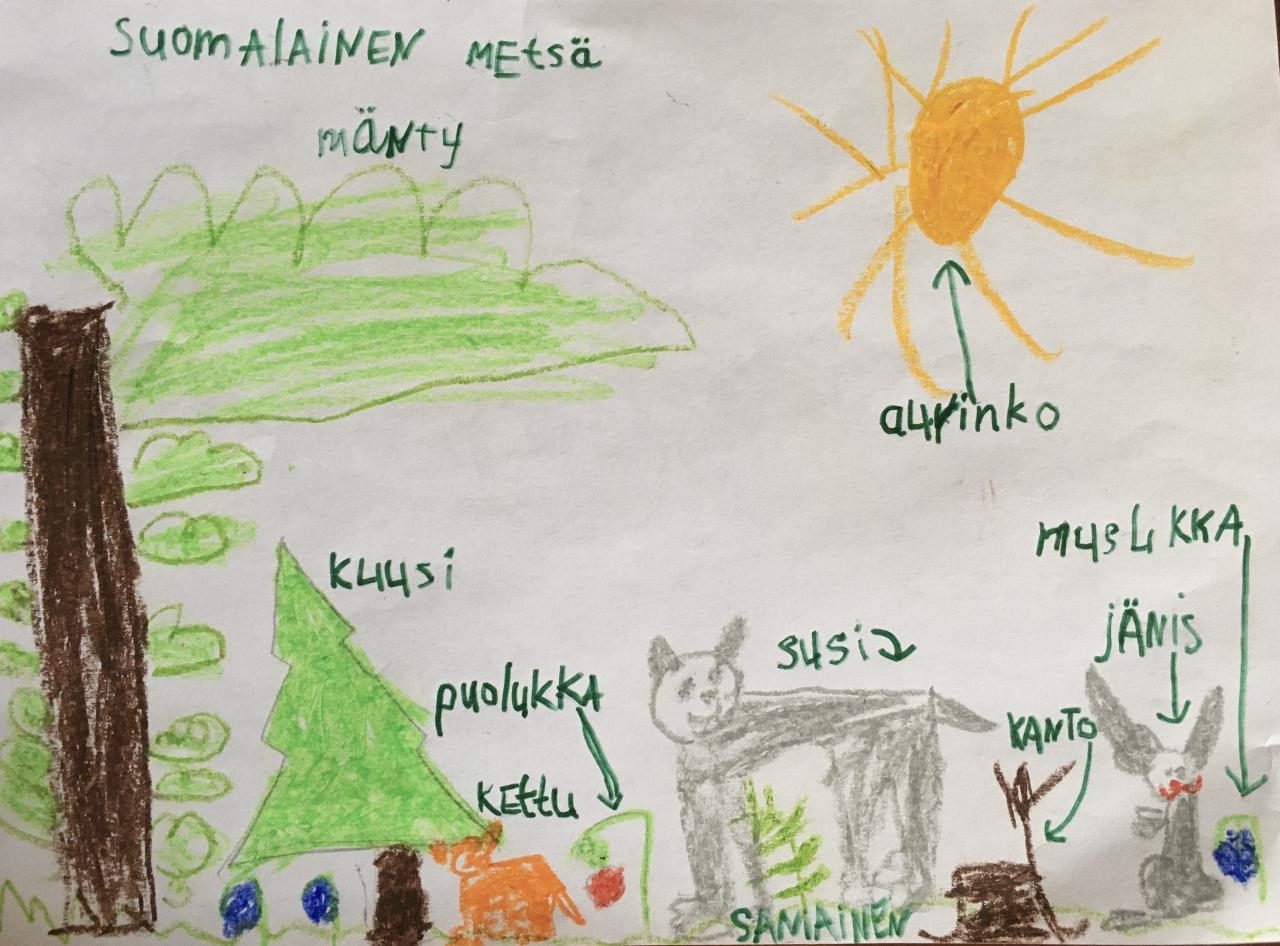 SUOMALAINEN MEtsä
mÄNty
aurinko
KUUSi
musLiKKA
jÄNiS
susi
puolukKA
KANTO
KEttu
SAMAINEN